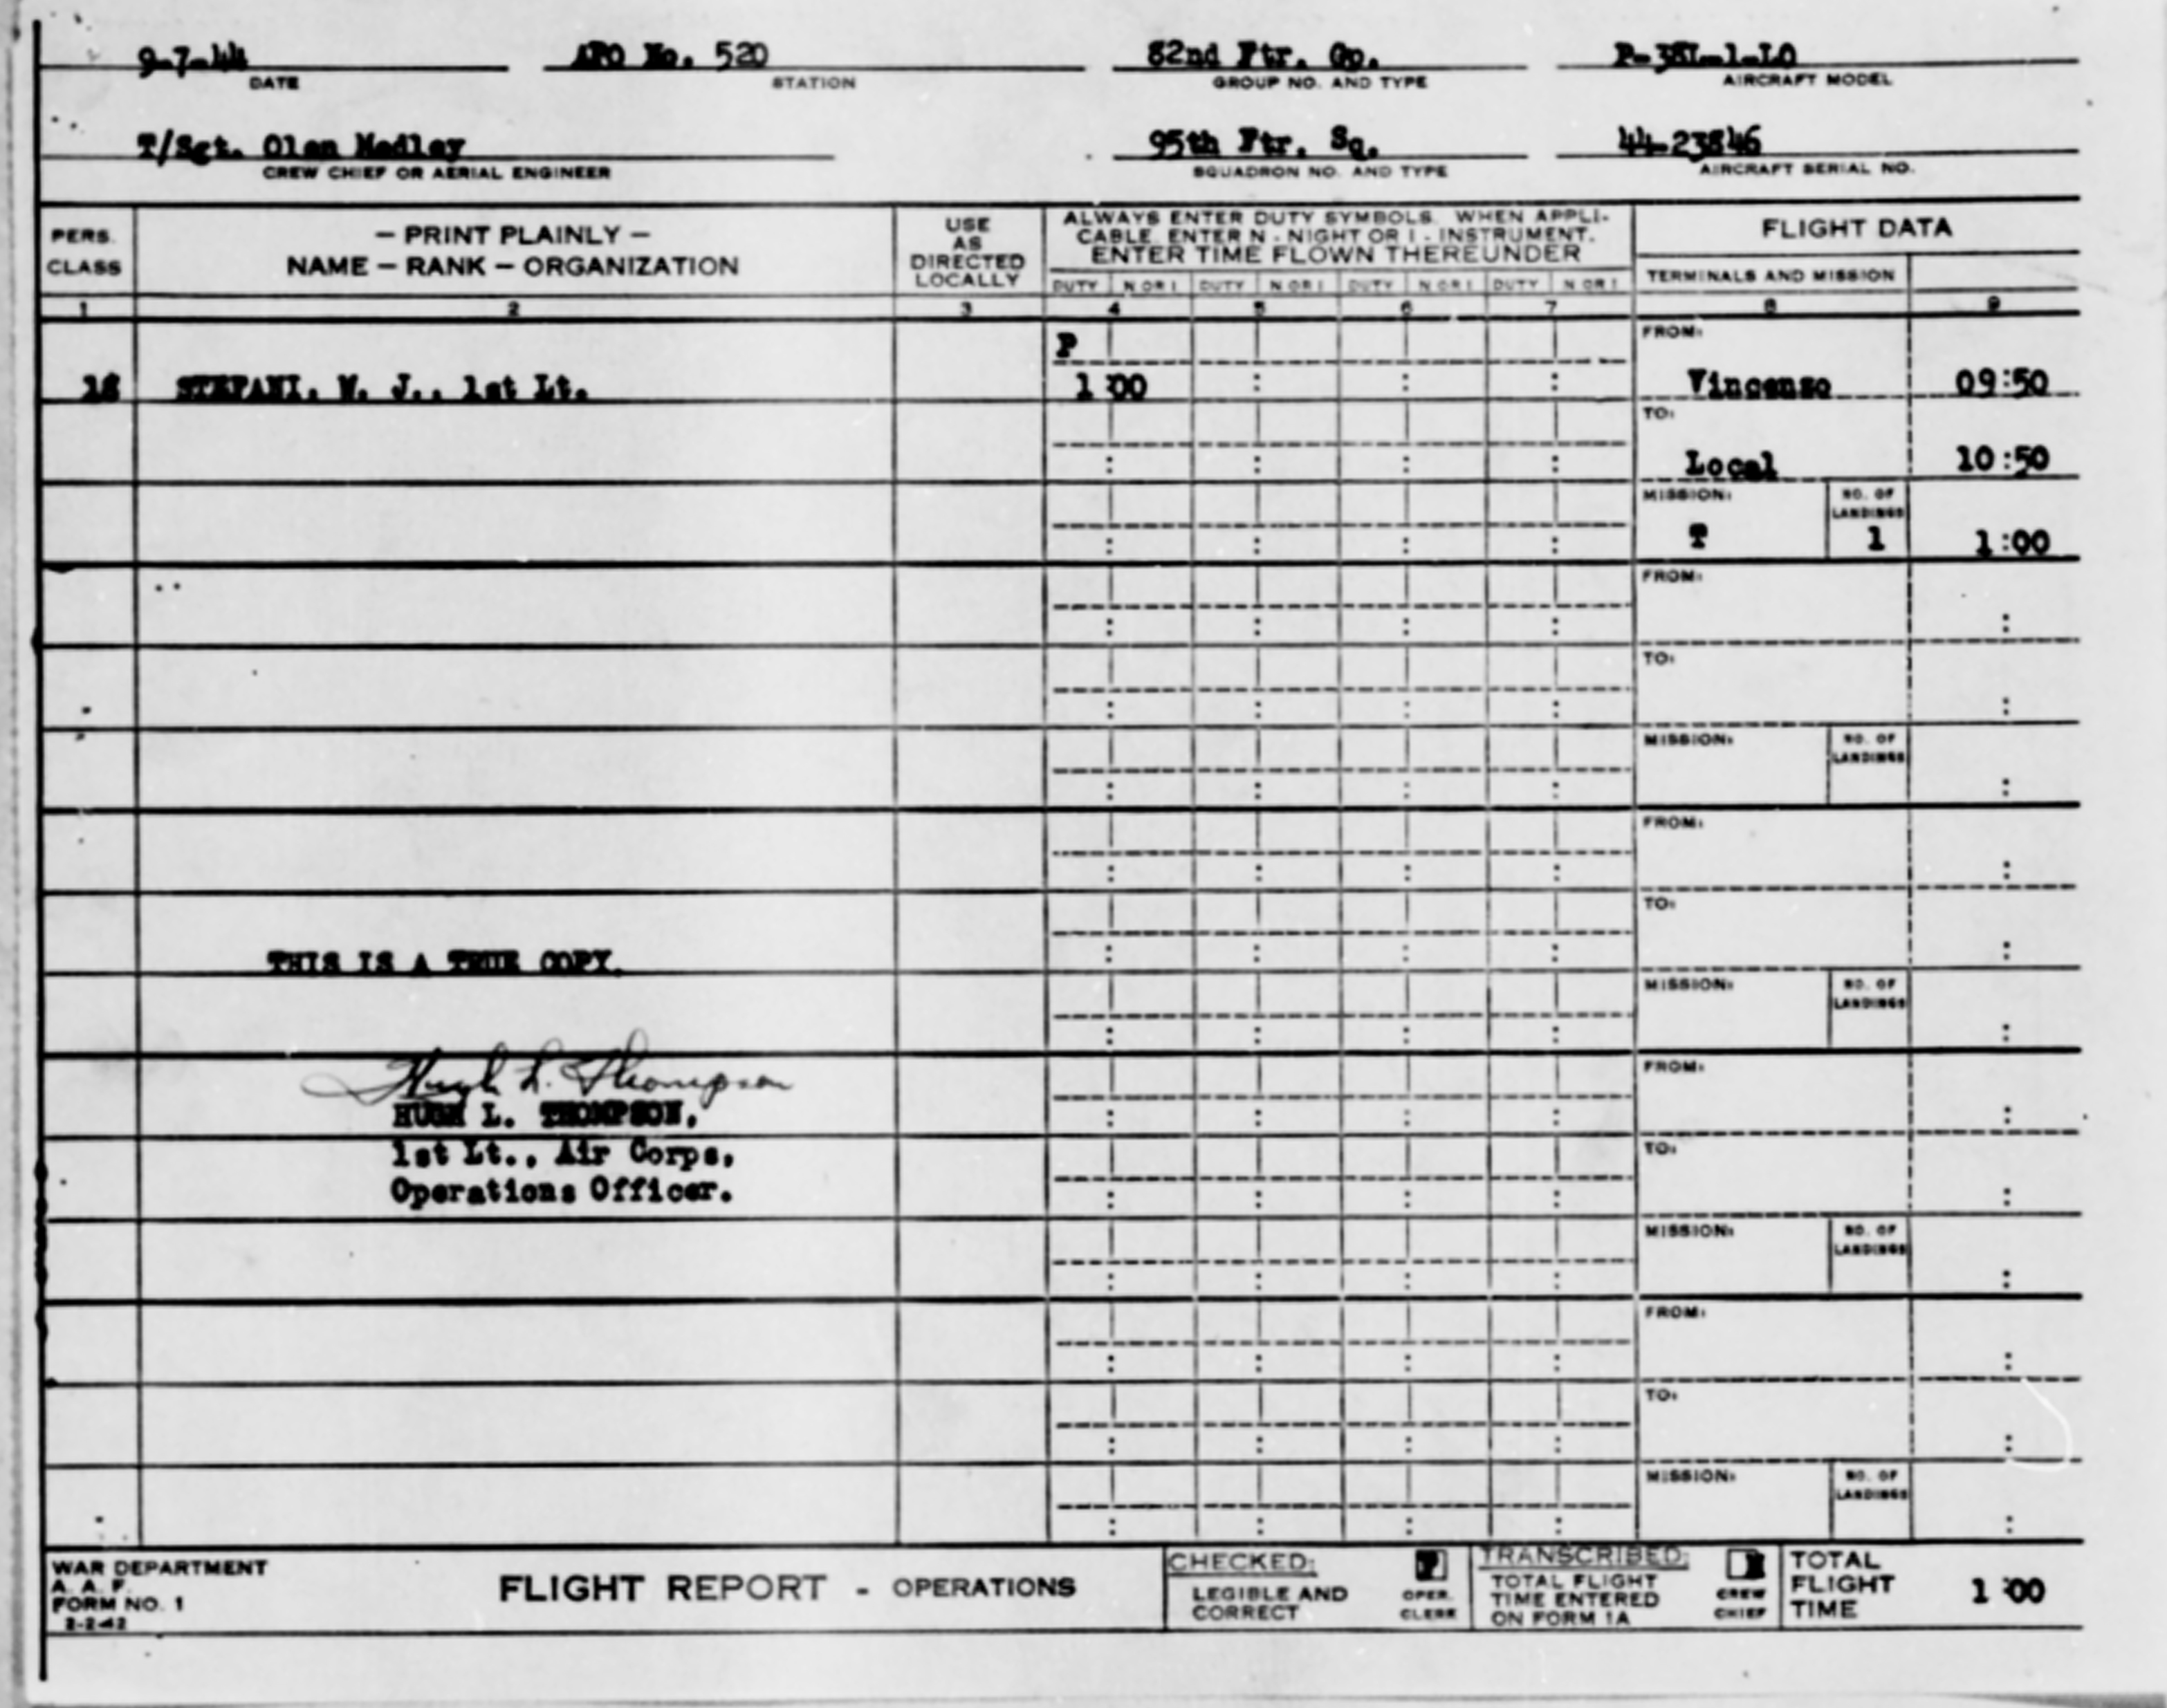 9-7-44 APO No. 520 82nd Ftr. Gp. P-38L-1-LO
DATE STATION GROUP NO. AND TYPE AIRCRAFT MODEL
T/Sgt. Olen Medley 95th Ftr. Sq. 44-23846
CREW CHIEF OR AERIAL ENGINEER SQUADRON NO. AND TYPE AIRCRAFT SERIAL NO.
PERS. CLASS
— PRINT PLAINLY —
NAME — RANK — ORGANIZATION
USE AS DIRECTED LOCALLY
ALWAYS ENTER DUTY SYMBOLS. WHEN APPLI-
CABLE, ENTER N - NIGHT OR I - INSTRUMENT.
ENTER TIME FLOWN THEREUNDER
DUTY N OR I DUTY N OR I DUTY N OR I DUTY N OR I
FLIGHT DATA
TERMINALS AND MISSION
1 2 3 4 5 6 7 8 9
P FROM:
18 STEFANI, W. J., 1st Lt. 1:00 Vincenzo 09:50
TO:
Local 10:50
MISSION: NO. OF LANDINGS
T 1 1:00
FROM:
TO:
MISSION: NO. OF LANDINGS
FROM:
TO:
THIS IS A TRUE COPY.
MISSION: NO. OF LANDINGS
Hugh L. Thompson
FROM:
HUGH L. THOMPSON,
1st Lt., Air Corps,
TO:
Operations Officer.
MISSION: NO. OF LANDINGS
FROM:
TO:
MISSION: NO. OF LANDINGS
WAR DEPARTMENT
A. A. F.
FORM NO. 1
2-2-42
FLIGHT REPORT - OPERATIONS
CHECKED:
LEGIBLE AND
CORRECT
OPER.
CLERK
TRANSCRIBED:
TOTAL FLIGHT
TIME ENTERED
ON FORM 1A
CREW
CHIEF
TOTAL
FLIGHT
TIME
1:00